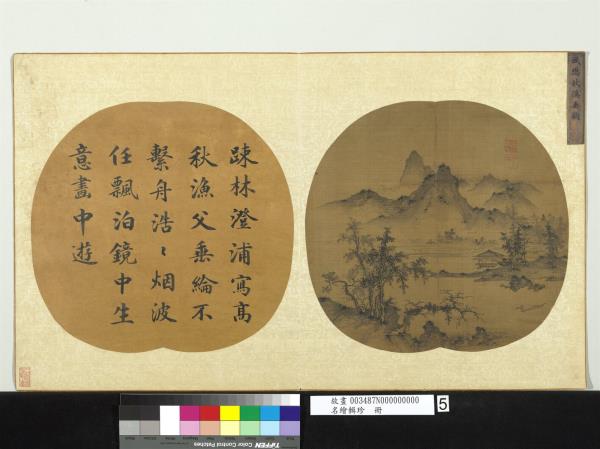 踈林澄浦寫高
秋漁父垂綸不
繫舟浩〻烟波
任飄泊鏡中生
意畫中遊
故畫 003487N000000000
名繪輯珍 冊
5
TIFFEN Color Control Patches